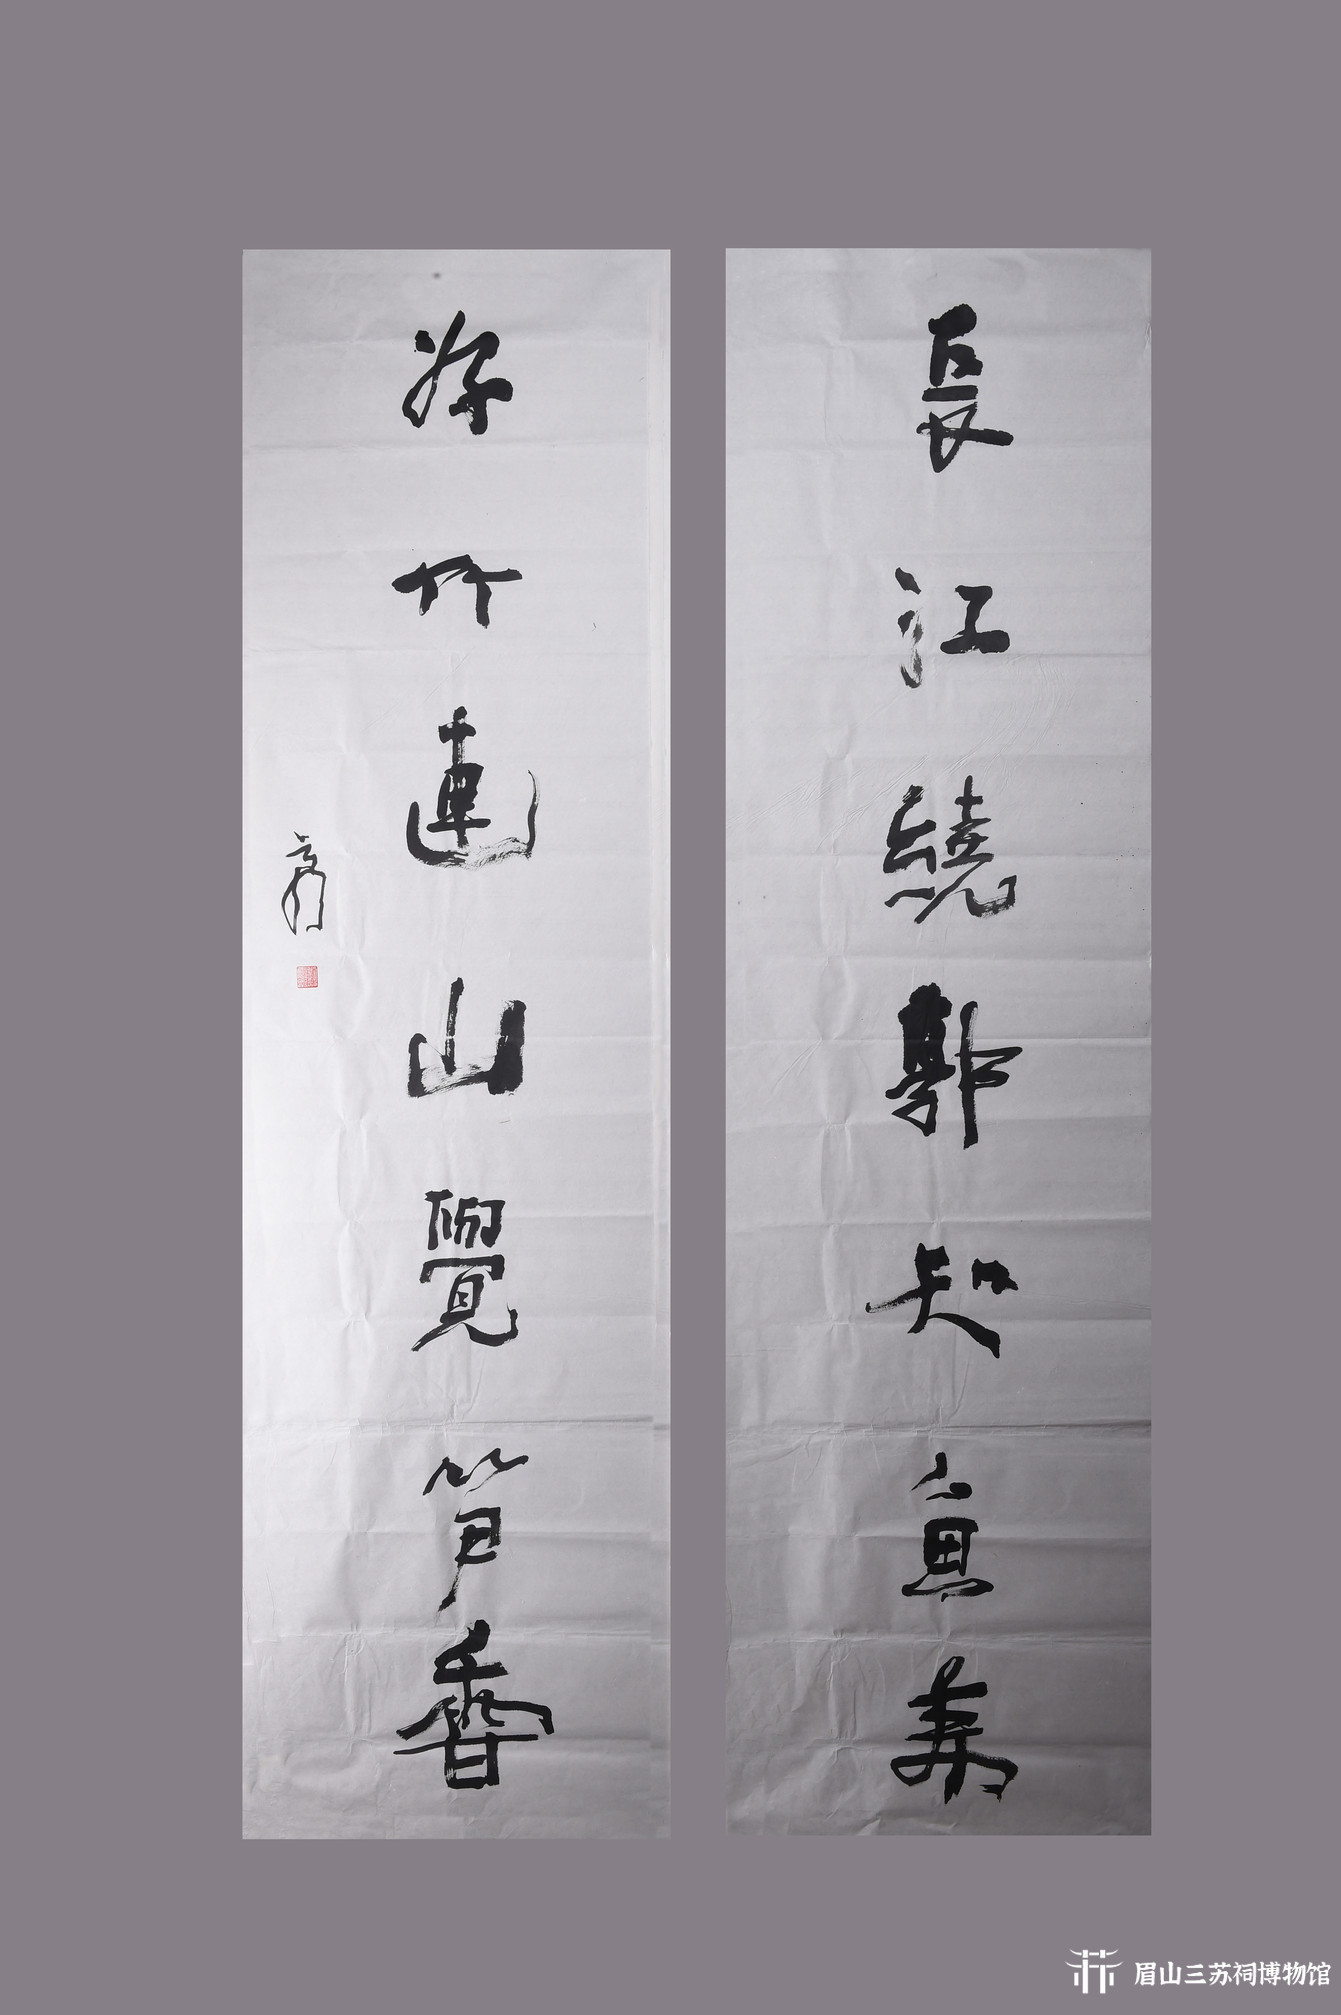 長江繞郭知魚美
好竹連山覺筍香
眉山三苏祠博物馆